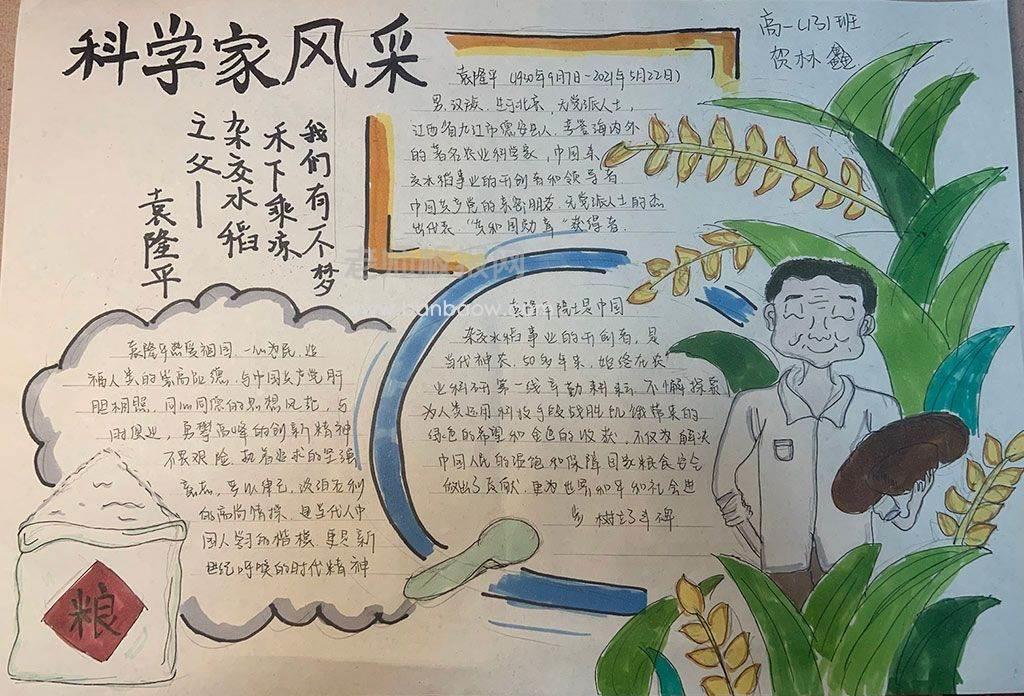 科学家风采
高一(13)班
贺林鑫
我们有一个梦
禾下乘凉
杂交水稻
之父——
袁隆平
袁隆平(1930年9月7日-2021年5月22日)
男,汉族,生于北京,无党派人士,
江西省九江市德安县人,享誉海内外
的著名农业科学家,中国杂
交水稻事业的开创者和领导者
中国共产党的亲密朋友,无党派人士的杰
出代表,"共和国勋章"获得者.
袁隆平院士是中国
杂交水稻事业的开创者,是
当代神农.50多年来,始终在农
业科研第一线辛勤耕耘,不懈探索
为人类运用科技手段战胜饥饿带来的
绿色的希望和金色的收获,不仅为解决
中国人民的温饱和保障国家粮食安全
做出了贡献,更为世界和平和社会进
步树立了丰碑
袁隆平热爱祖国,一心为民,造
福人类的崇高品德,与中国共产党肝
胆相照,同心同德的思想风范,与
时俱进,勇攀高峰的创新精神
不畏艰险,执着追求的坚强
意志,严以律己,淡泊名利
的高尚情操,是当代人中
国人学习的楷模,更是新
世纪呼唤的时代精神
粮
老师板报网
www.banbaow.com